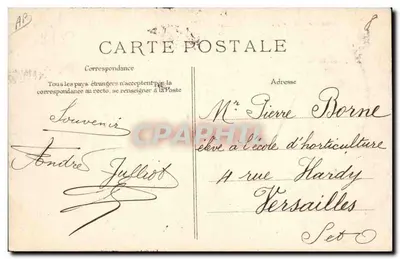 AP
CARTE POSTALE
Correspondance
Tous les pays étrangers n'acceptent pas la
correspondance au recto. se renseigner à la Poste
Adresse
Souvenir
André Julliot
Mr Pierre Borne
élève à l'école d'horticulture
4 rue Hardy
Versailles
Set O
Carte-Postale